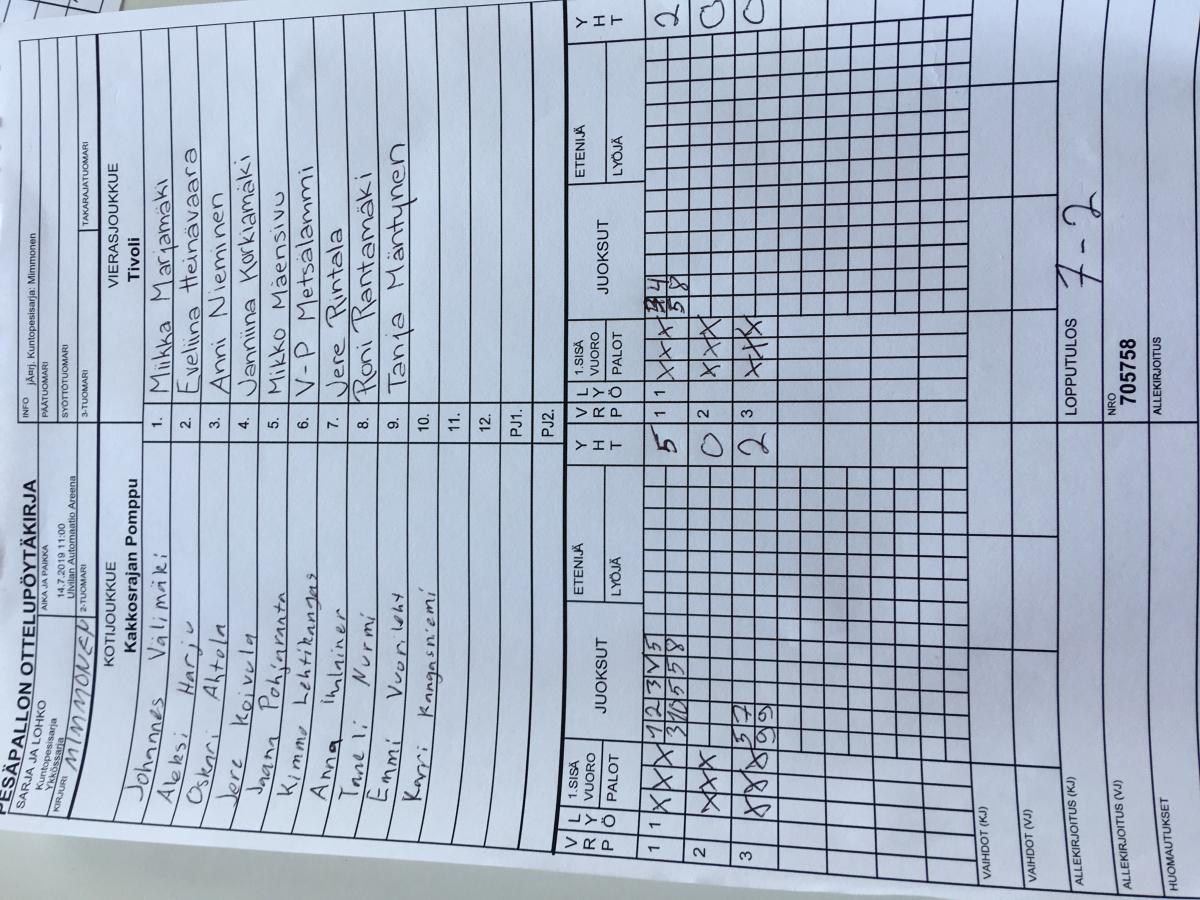 PESÄPALLON OTTELUPÖYTÄKIRJA
SARJA JA LOHKO
Kuntopesisarja
Ykkössarja
AIKA JA PAIKKA
14.7.2019 11:00
Ulvilan Automaatio Areena
INFO jÄ¤rj. Kuntopesisarja: Mimmonen
PÄÄTUOMARI
SYÖTTÖTUOMARI
KIRJURI MIMMONEN
2-TUOMARI
3-TUOMARI
TAKARAJATUOMARI
KOTIJOUKKUE
Kakkosrajan Pomppu
VIERASJOUKKUE
Tivoli
Johannes Välimäki 1. Miikka Marjamäki
Aleksi Harju 2. Eveliina Heinävaara
Oskari Ahtola 3. Anni Nieminen
Jere Koivula 4. Janniina Korkiamäki
Jaana Pohjaranta 5. Mikko Mäensivu
Kimmo Lehtikangas 6. V-P Metsälammi
Anna Ihalainen 7. Jere Rintala
Taneli Nurmi 8. Roni Rantamäki
Emmi Vuorileht 9. Tanja Mäntynen
Karri Kangasniemi 10.
11.
12.
PJ1.
PJ2.
V R P L Y Ö 1.SISÄ VUORO PALOT JUOKSUT ETENIJÄ LYÖJÄ Y H T V R P L Y Ö 1.SISÄ VUORO PALOT JUOKSUT ETENIJÄ LYÖJÄ Y H T
1 1 X X X 1 2 3 5 5 1 1 X X X 4 2
3 10 5 5 8 5 8
2 X X X 0 2 X X X 0
3 X X X 5 7 2 3 X X X 0
9 9
VAIHDOT (KJ)
VAIHDOT (VJ)
ALLEKIRJOITUS (KJ)
LOPPUTULOS 7 - 2
ALLEKIRJOITUS (VJ)
NRO
705758
HUOMAUTUKSET
ALLEKIRJOITUS